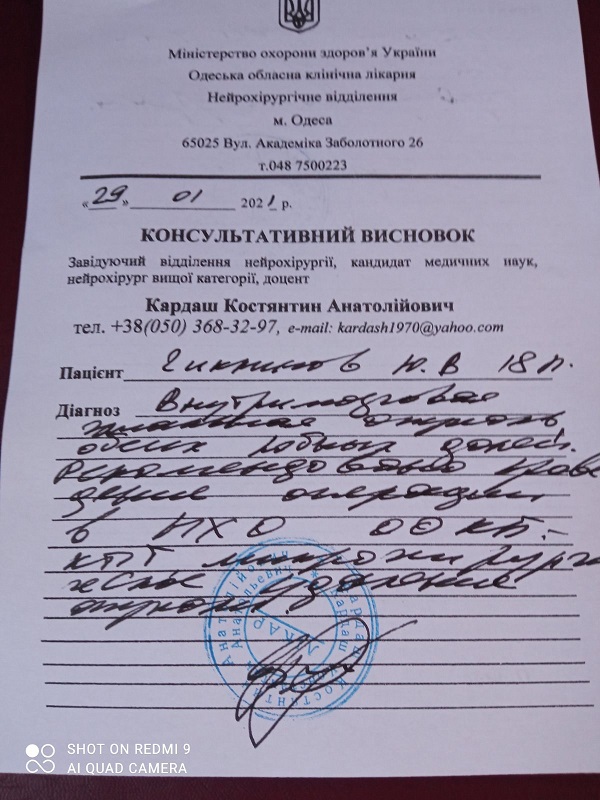 Міністерство охорони здоров'я України
Одеська обласна клінічна лікарня
Нейрохірургічне відділення
м. Одеса
65025 Вул. Академіка Заболотного 26
т.048 7500223
«29» 01 2021 р.
КОНСУЛЬТАТИВНИЙ ВИСНОВОК
Завідуючий відділення нейрохірургії, кандидат медичних наук,
нейрохірург вищої категорії, доцент
Кардаш Костянтин Анатолійович
тел. +38(050) 368-32-97, e-mail: kardash1970@yahoo.com
Пацієнт Ю. В 18 л.
Діагноз Внутримозговая
опухоль
обеих лобных долей.
Рекомендовано прове
дение операции
в НХО ООКБ.-
удаление
опухоли
SHOT ON REDMI 9
AI QUAD CAMERA